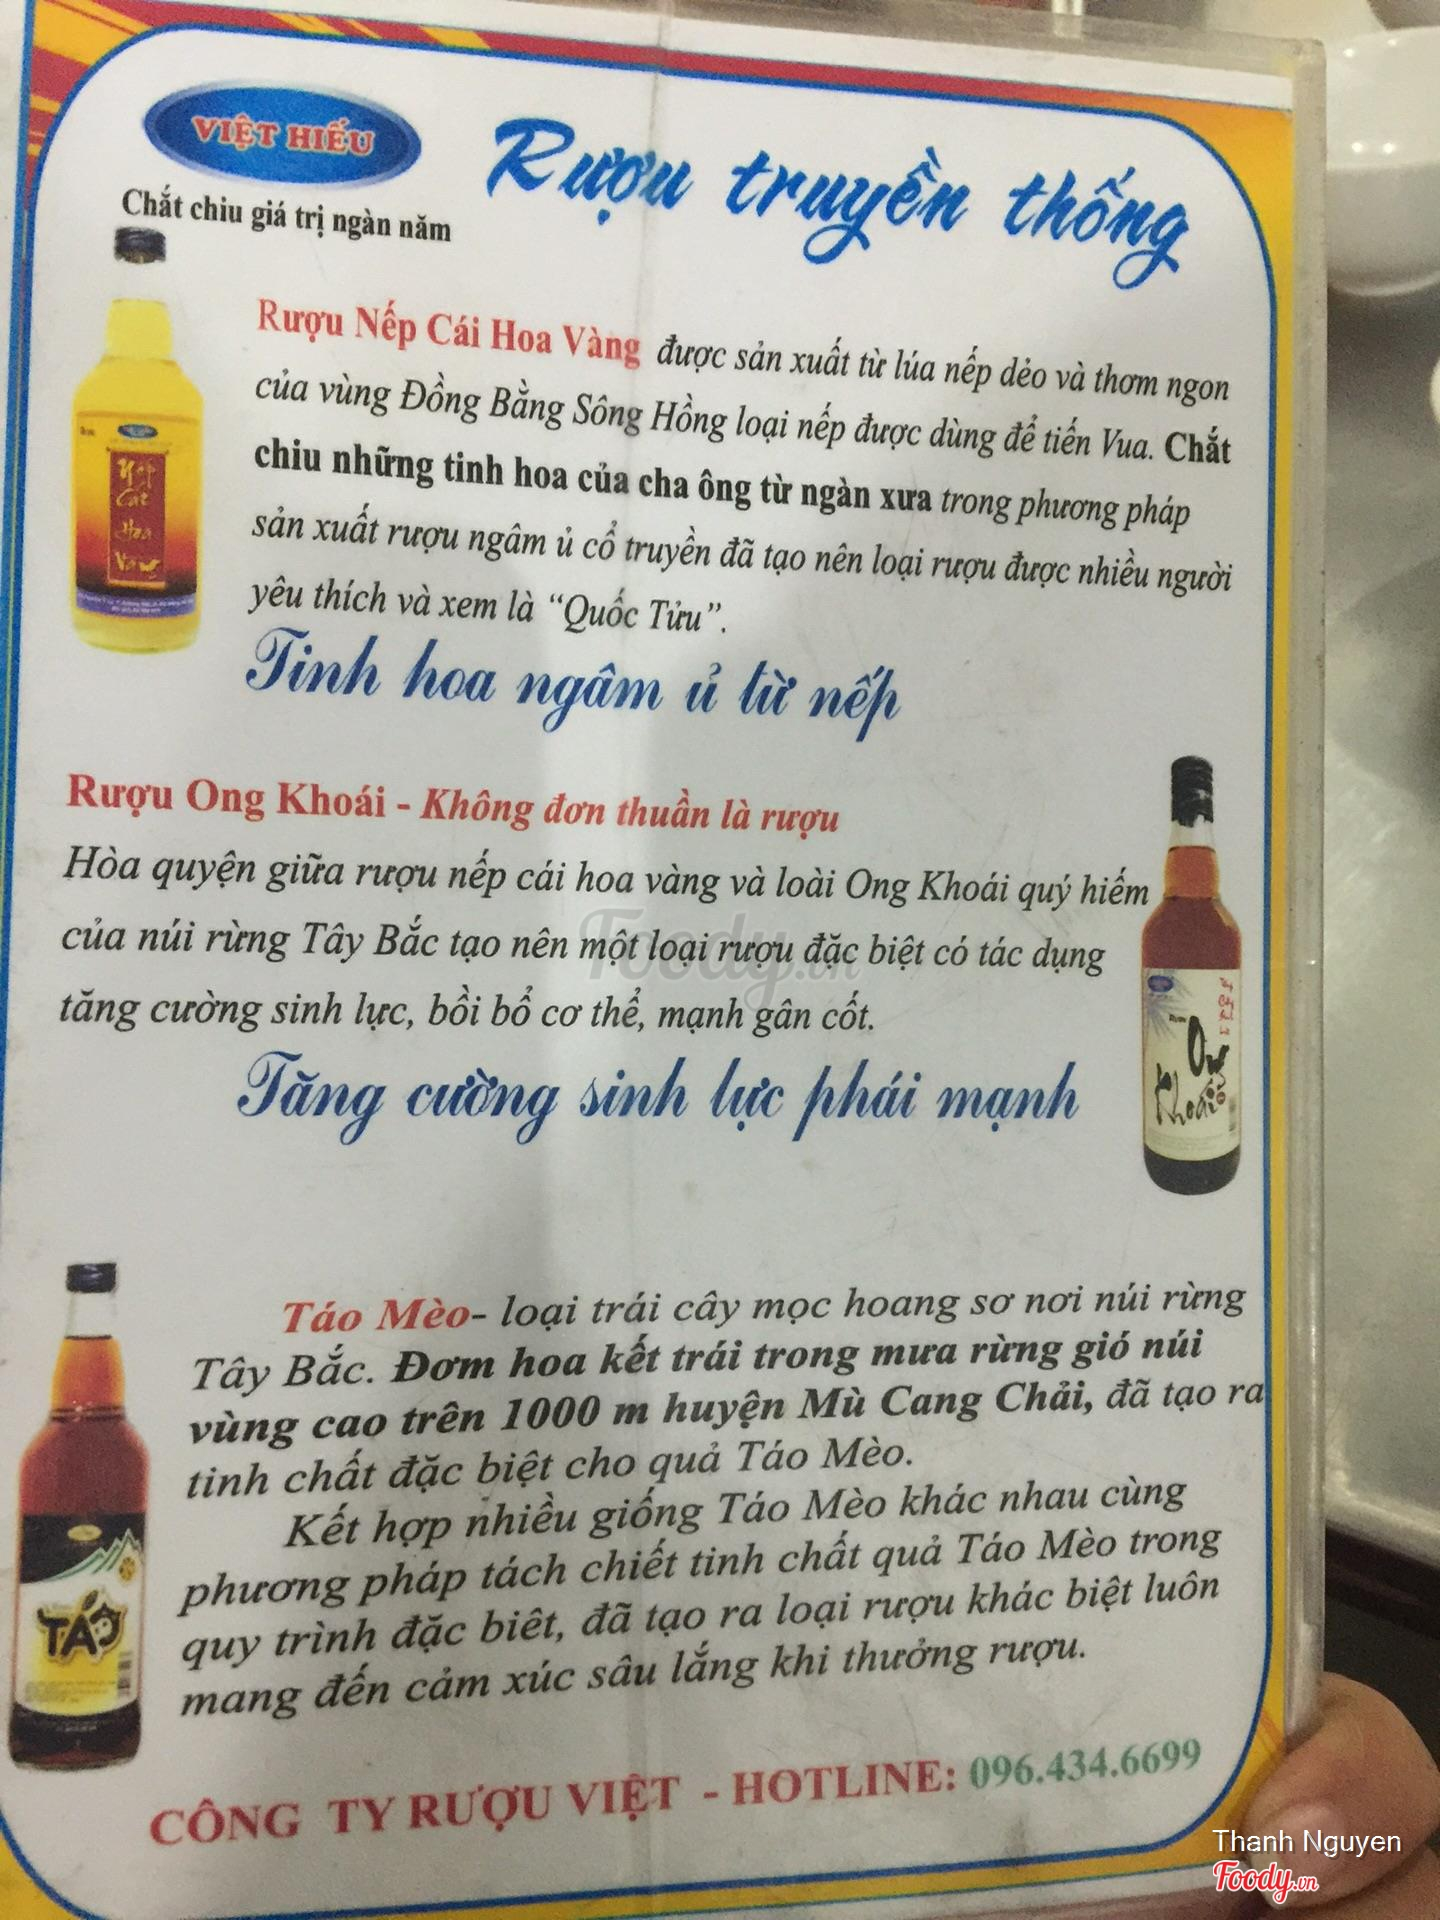 VIỆT HIẾU
Chắt chiu giá trị ngàn năm
Rượu truyền thống
Rượu Nếp Cái Hoa Vàng được sản xuất từ lúa nếp dẻo và thơm ngon
của vùng Đồng Bằng Sông Hồng loại nếp được dùng để tiến Vua. Chắt
chiu những tinh hoa của cha ông từ ngàn xưa trong phương pháp
sản xuất rượu ngâm ủ cổ truyền đã tạo nên loại rượu được nhiều người
yêu thích và xem là “Quốc Tửu”.
Nếp
Cái
Hoa
Vàng
Tinh hoa ngâm ủ từ nếp
Rượu Ong Khoái - Không đơn thuần là rượu
Hòa quyện giữa rượu nếp cái hoa vàng và loài Ong Khoái quý hiếm
của núi rừng Tây Bắc tạo nên một loại rượu đặc biệt có tác dụng
tăng cường sinh lực, bồi bổ cơ thể, mạnh gân cốt.
Tăng cường sinh lực phái mạnh
Ong
Khoái
Táo Mèo- loại trái cây mọc hoang sơ nơi núi rừng
Tây Bắc. Đơm hoa kết trái trong mưa rừng gió núi
vùng cao trên 1000 m huyện Mù Cang Chải, đã tạo ra
tinh chất đặc biệt cho quả Táo Mèo.
Kết hợp nhiều giống Táo Mèo khác nhau cùng
phương pháp tách chiết tinh chất quả Táo Mèo trong
quy trình đặc biêt, đã tạo ra loại rượu khác biệt luôn
mang đến cảm xúc sâu lắng khi thưởng rượu.
TÁO
CÔNG TY RƯỢU VIỆT - HOTLINE: 096.434.6699
Foody.vn
Thanh Nguyen
Foody.vn